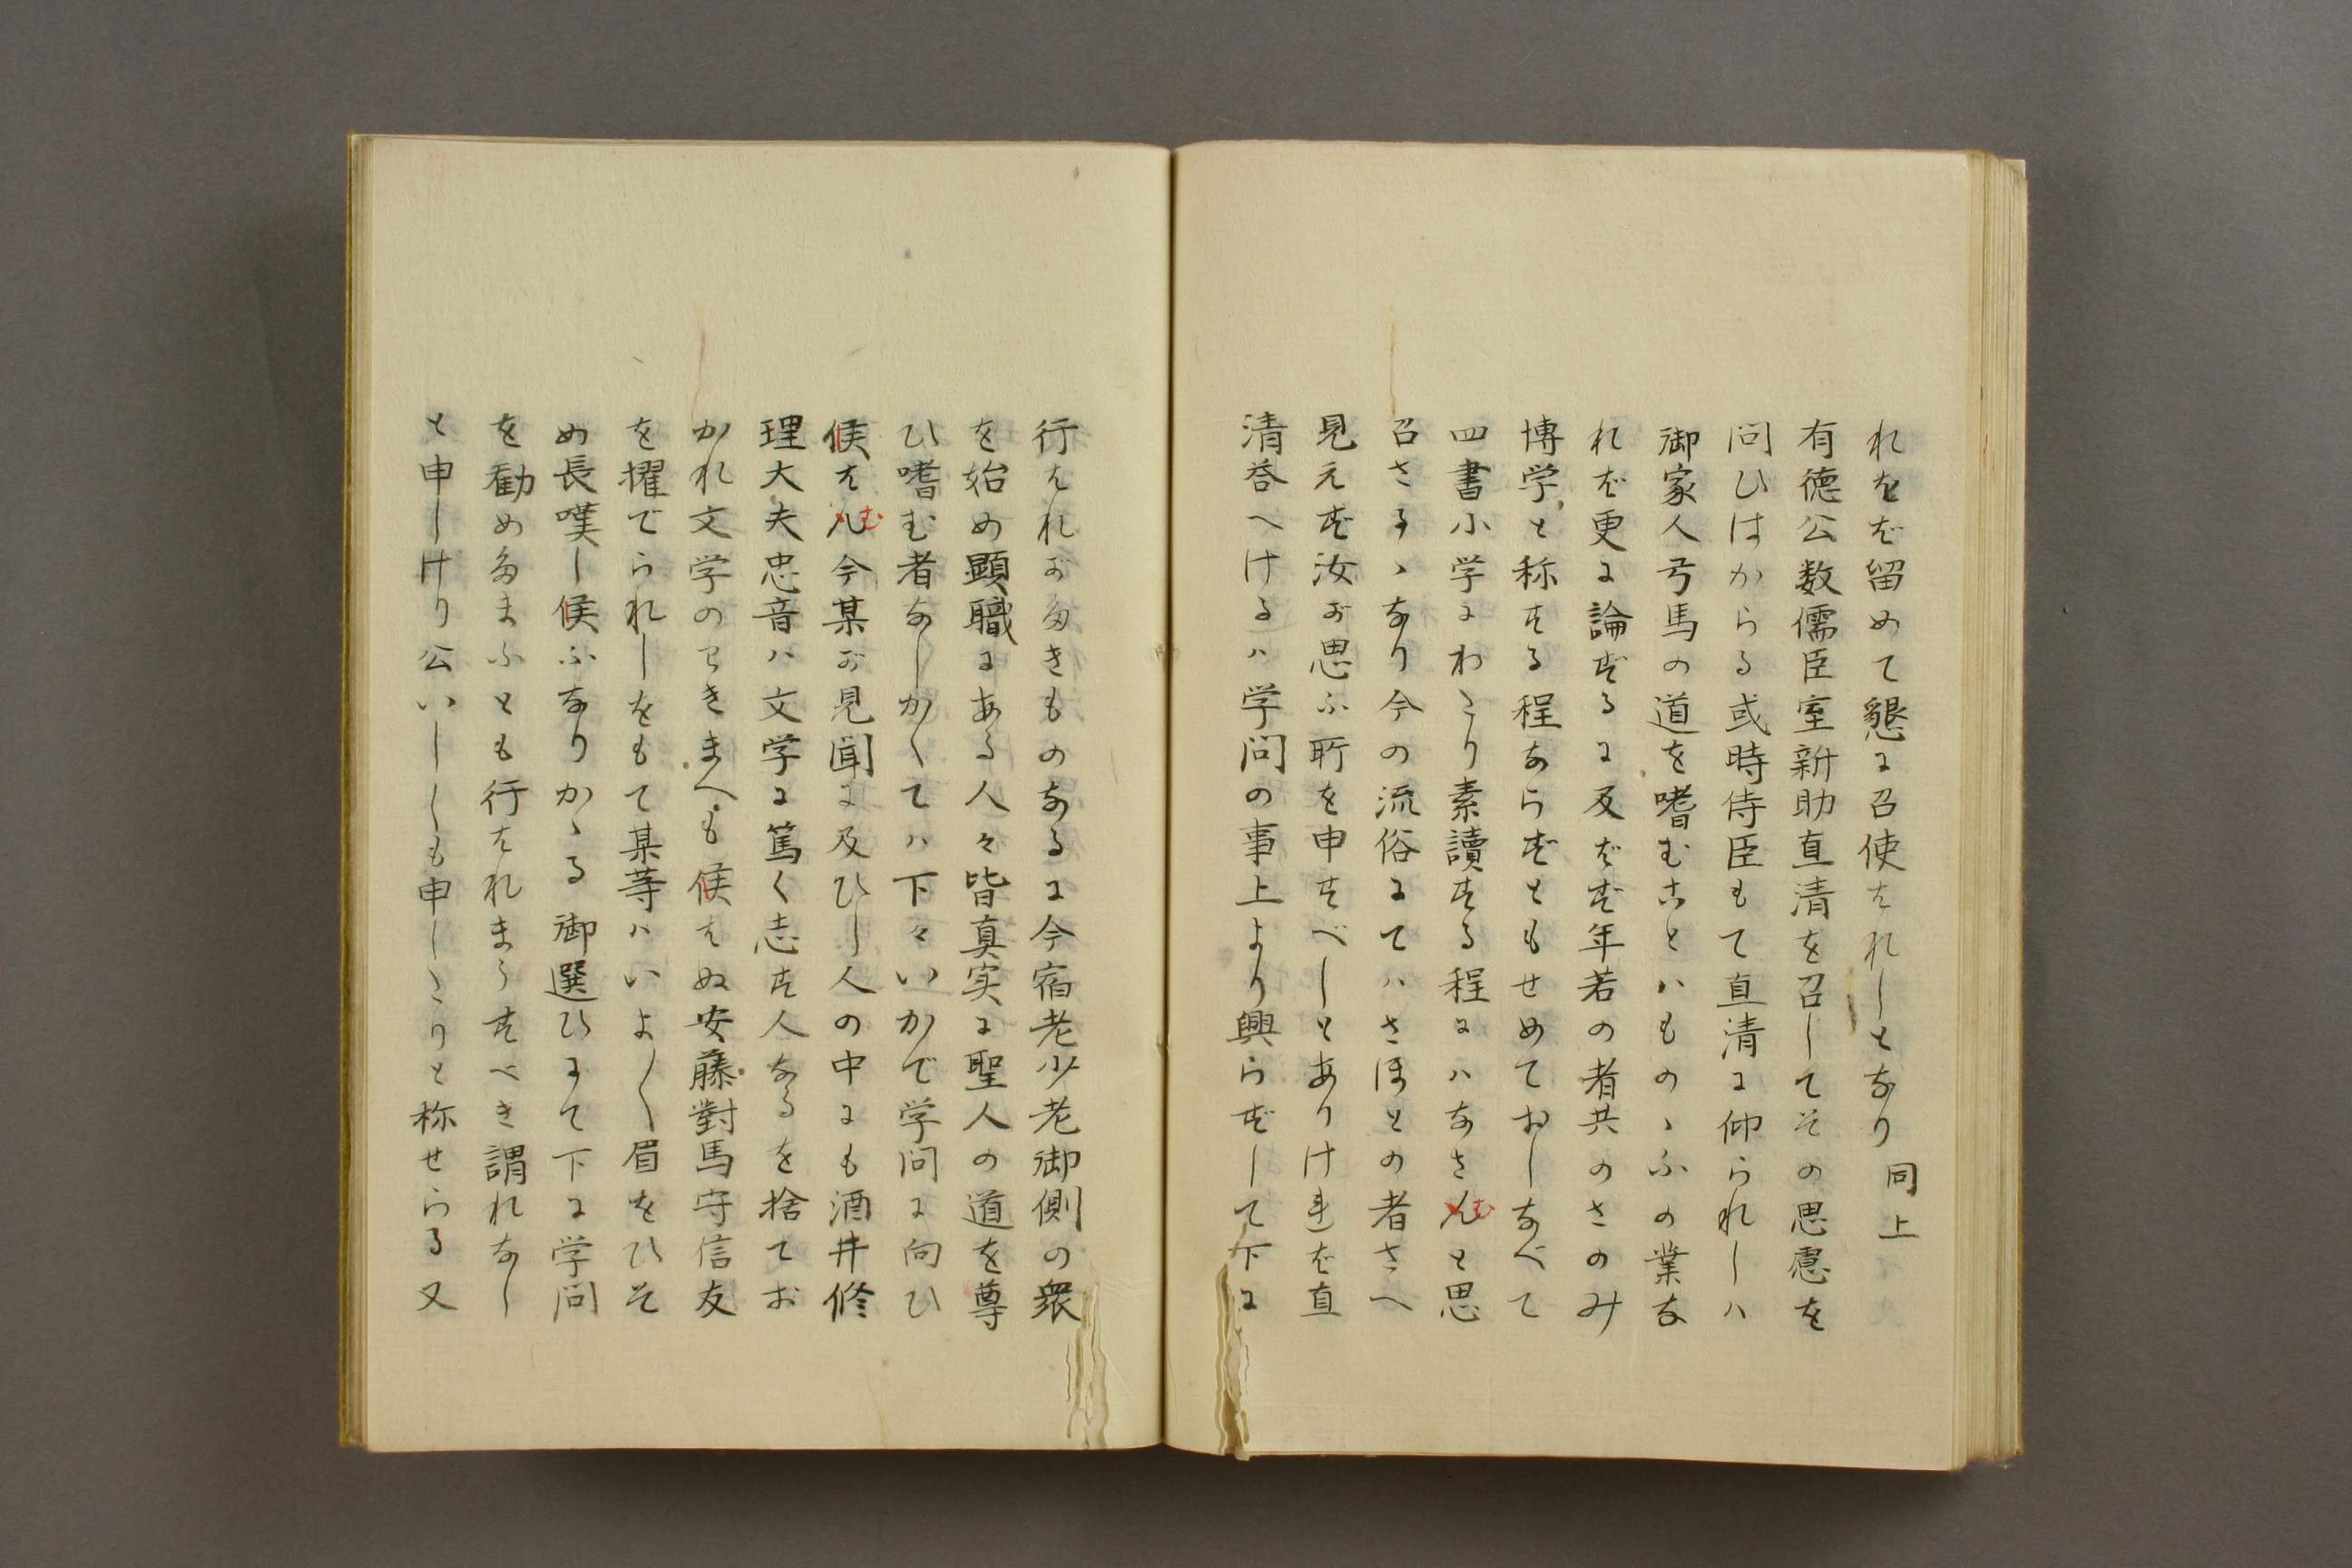 れをば留めて懇に召使はれしとなり 同上
有徳公数儒臣室新助直清を召してその思慮を
問ひはからる或時侍臣もて直清に仰られしハ
御家人弓馬の道を嗜むことハものゝふの業な
れば更に論ずるに及ばず年若の者共のさのみ
博学と称する程あらずともせめておしなべて
四書小学にわたり素讀する程にハなさむと思
召さるゝなり今の流俗にてハさほとの者さへ
見えず汝が思ふ所を申すべしとありけれは直
清答へけるハ学問の事上より興らずして下に
行はれがたきものなるに今宿老少老御側の衆
を始め顕職にある人々皆真実に聖人の道を尊
ひ嗜む者なしかくてハ下々いかで学問に向ひ
候はむ今某が見聞に及ひし人の中にも酒井修
理大夫忠音ハ文学に篤く志す人なるを捨てお
かれ文学のわきまへも候はぬ安藤對馬守信友
を擢でられしをもて某等ハいよ〱眉をひそ
め長嘆し候ふなりかゝる御選ひにて下に学問
を勧めたまふとも行はれまうすべき謂れなし
と申しけり公いしくも申したりと称せらる又